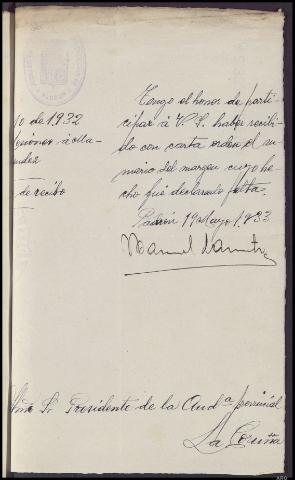 o de 1932
lesiones à Ma-
ndez
de recibo
Tengo el honor de parti-
cipar à V. S. haber recibi-
do con carta orden el su-
mario del margen cuyo he-
cho fué declarado falta.
Padrón 19 Mayo 1933
Manuel
Sr. Presidente de la Audª provincial
La Coruña